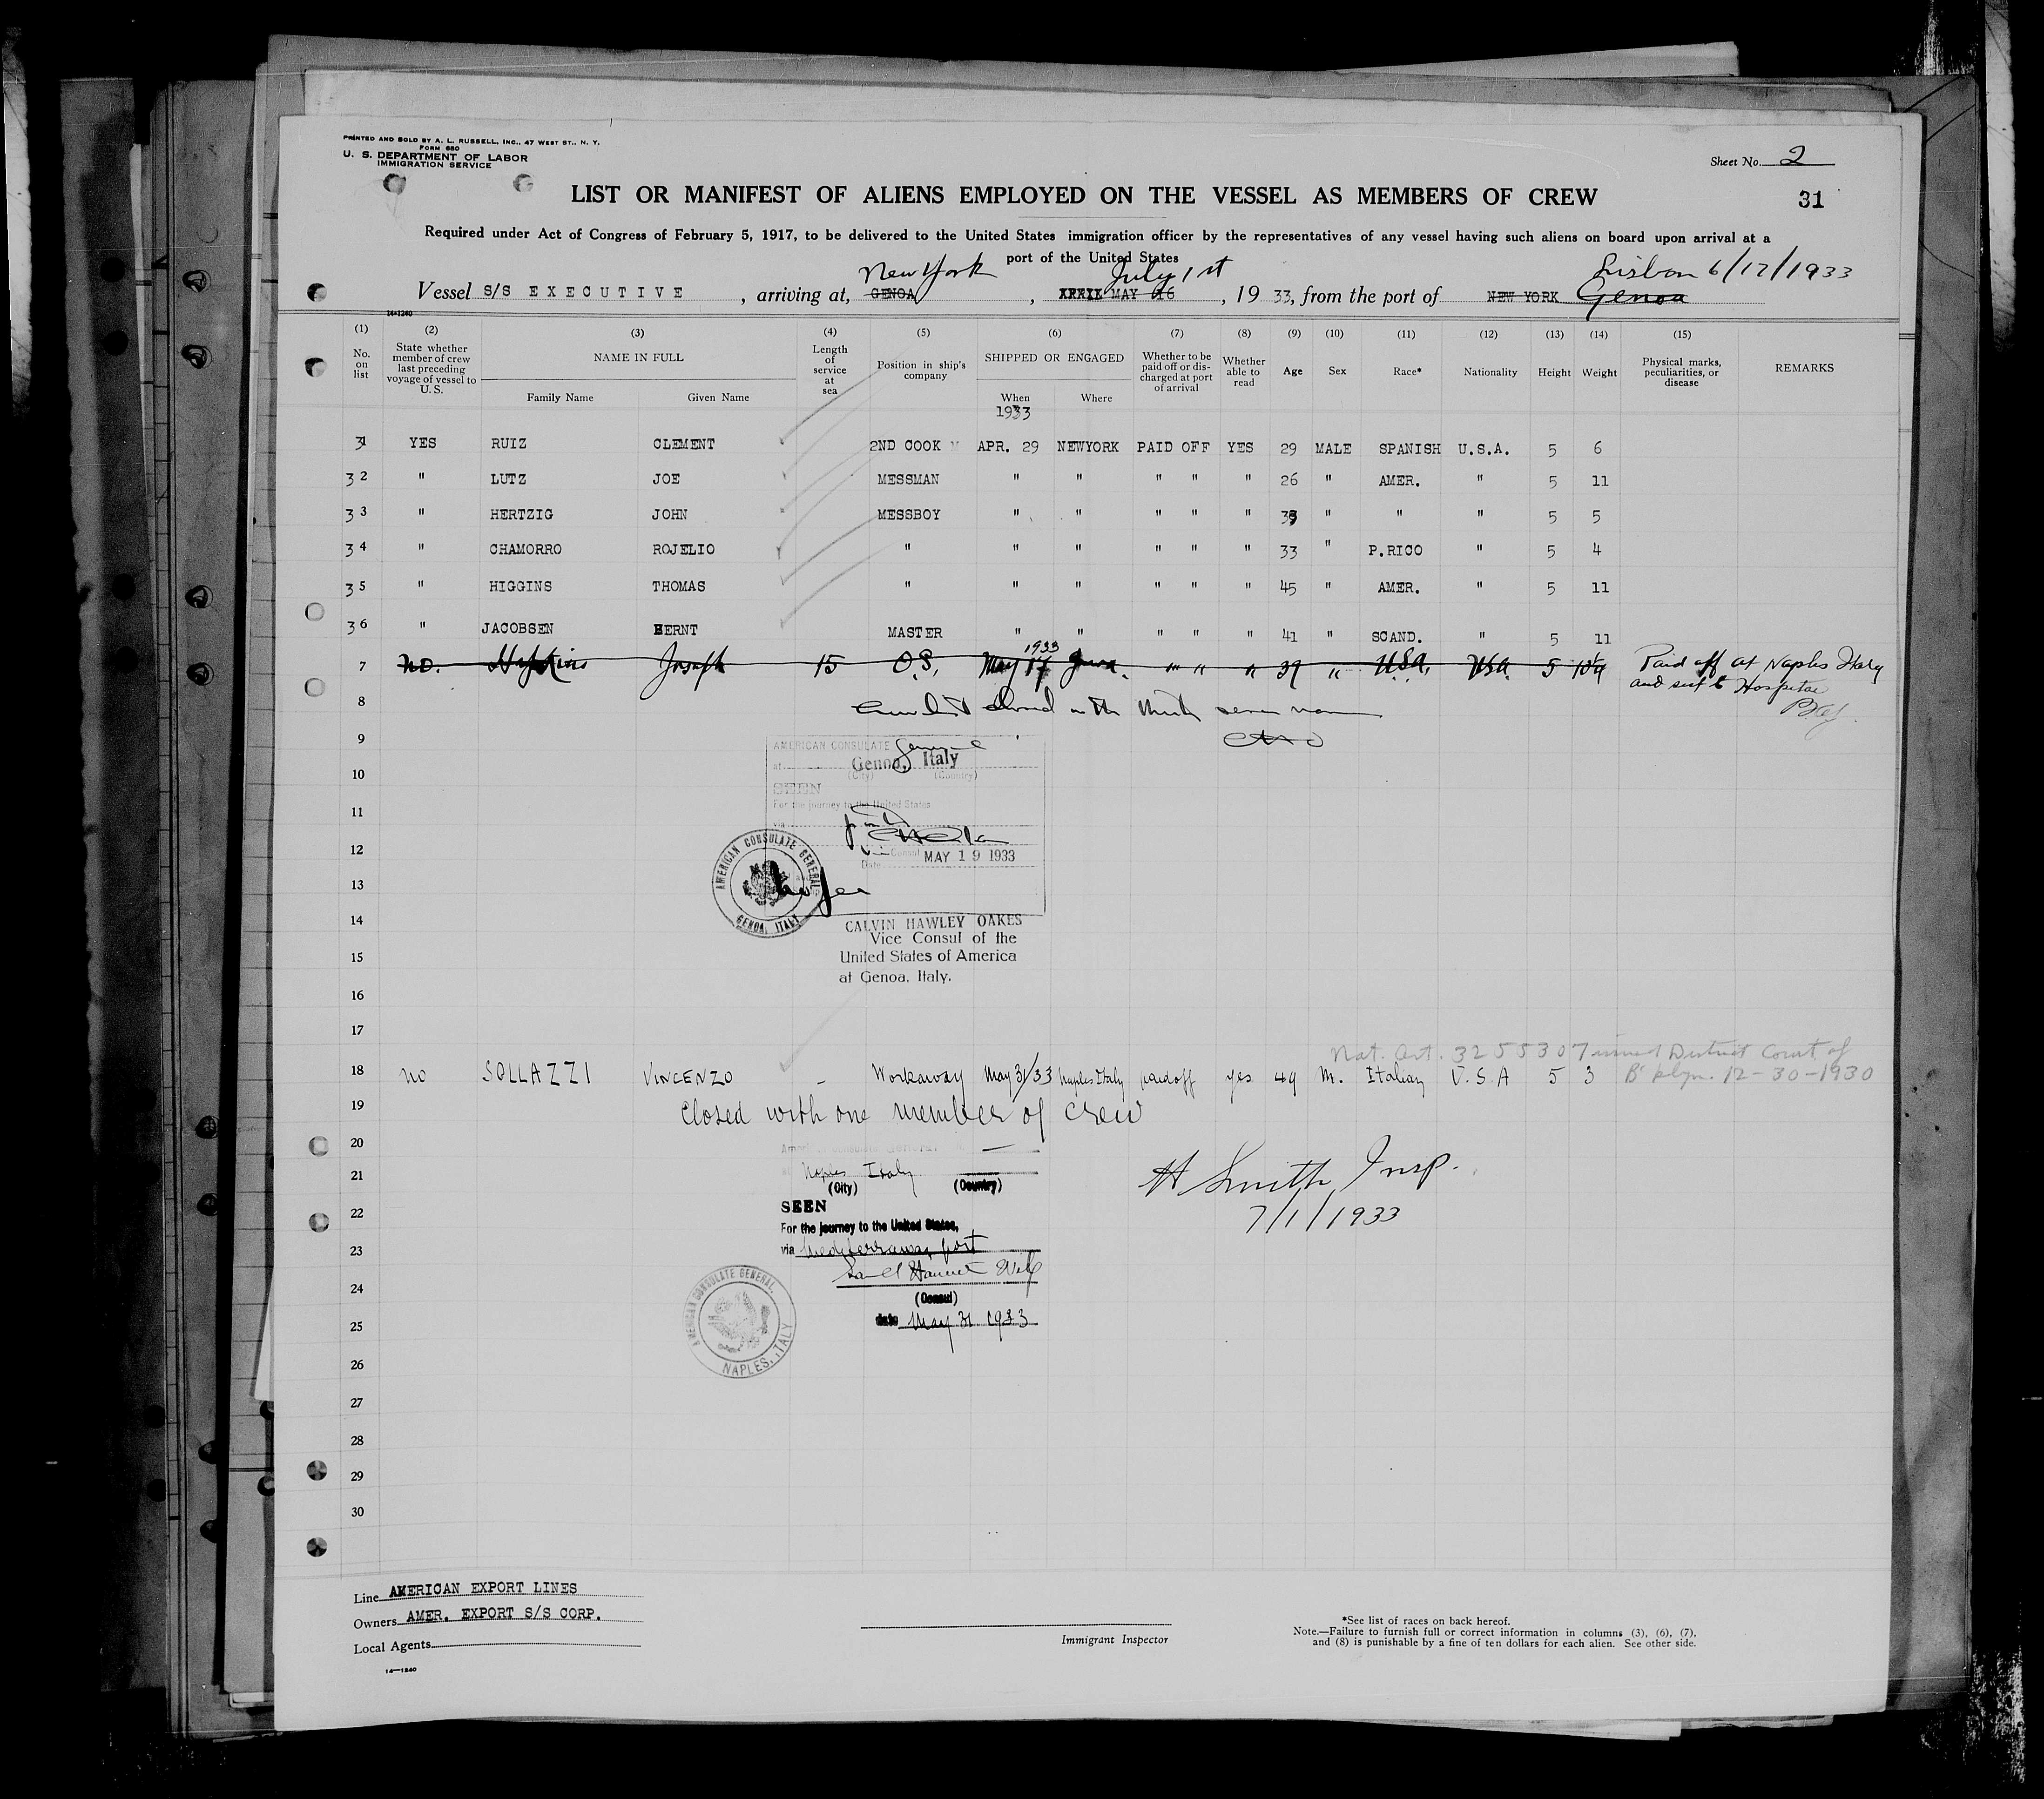 PRINTED AND SOLD BY A. L. RUSSELL, INC., 47 WEST ST., N. Y.
FORM 680
U. S. DEPARTMENT OF LABOR
IMMIGRATION SERVICE
Sheet No. 2
LIST OR MANIFEST OF ALIENS EMPLOYED ON THE VESSEL AS MEMBERS OF CREW
31
Required under Act of Congress of February 5, 1917, to be delivered to the United States immigration officer by the representatives of any vessel having such aliens on board upon arrival at a
port of the United States
New York July 1st Lisbon 6/17/1933
Vessel S/S EXECUTIVE , arriving at, GENOA , APRIL MAY 16 , 19 33, from the port of NEW YORK Genoa
14-1240
(1) (2) (3) (4) (5) (6) (7) (8) (9) (10) (11) (12) (13) (14) (15)
No. on list State whether member of crew last preceding voyage of vessel to U. S. NAME IN FULL Length of service at sea Position in ship's company SHIPPED OR ENGAGED Whether to be paid off or discharged at port of arrival Whether able to read Age Sex Race* Nationality Height Weight Physical marks, peculiarities, or disease REMARKS
Family Name Given Name When Where
1933
31 YES RUIZ CLEMENT 2ND COOK APR. 29 NEWYORK PAID OFF YES 29 MALE SPANISH U.S.A. 5 6
32 " LUTZ JOE MESSMAN " " " " " 26 " AMER. " 5 11
33 " HERTZIG JOHN MESSBOY " " " " " " " " 5 5
34 " CHAMORRO ROJELIO " " " " " " 33 " P.RICO " 5 4
35 " HIGGINS THOMAS " " " " " " 45 " AMER. " 5 11
36 " JACOBSEN BERNT MASTER " " " " " 41 " SCAND. " 5 11
7 no. Hopkins Joseph 15 O.S. May 17 1933 Genoa " " " 39 " U.S.A. USA. 5 10¼ Paid off at Naples Italy
and sent to Hospital
8
9
AMERICAN CONSULATE General
at Genoa, Italy
(City) (Country)
10
SEEN
For the journey to the United States
11
via
12
Consul
Date MAY 19 1933
AMERICAN CONSULATE GENERAL
GENOA, ITALY
13
14
CALVIN HAWLEY OAKES
Vice Consul of the
15
United States of America
at Genoa, Italy.
16
17
Nat. Cert. 3255307 issued District Court of
18 no SOLLAZZI VINCENZO - Workaway May 31/33 Naples Italy paid off yes 49 M. Italian U.S.A 5 3 B'klyn. 12-30-1930
19 Closed with one member of crew
20
21 Naples Italy
(City) (Country)
H Smith Insp.
22 SEEN
7/1/1933
For the journey to the United States,
23 via Mediterranean port
24
(Consul)
25 date May 31 1933
AMERICAN CONSULATE GENERAL,
NAPLES, ITALY
26
27
28
29
30
Line AMERICAN EXPORT LINES
Owners AMER. EXPORT S/S CORP.
Local Agents
Immigrant Inspector
*See list of races on back hereof.
Note.—Failure to furnish full or correct information in columns (3), (6), (7),
and (8) is punishable by a fine of ten dollars for each alien. See other side.
14-1240